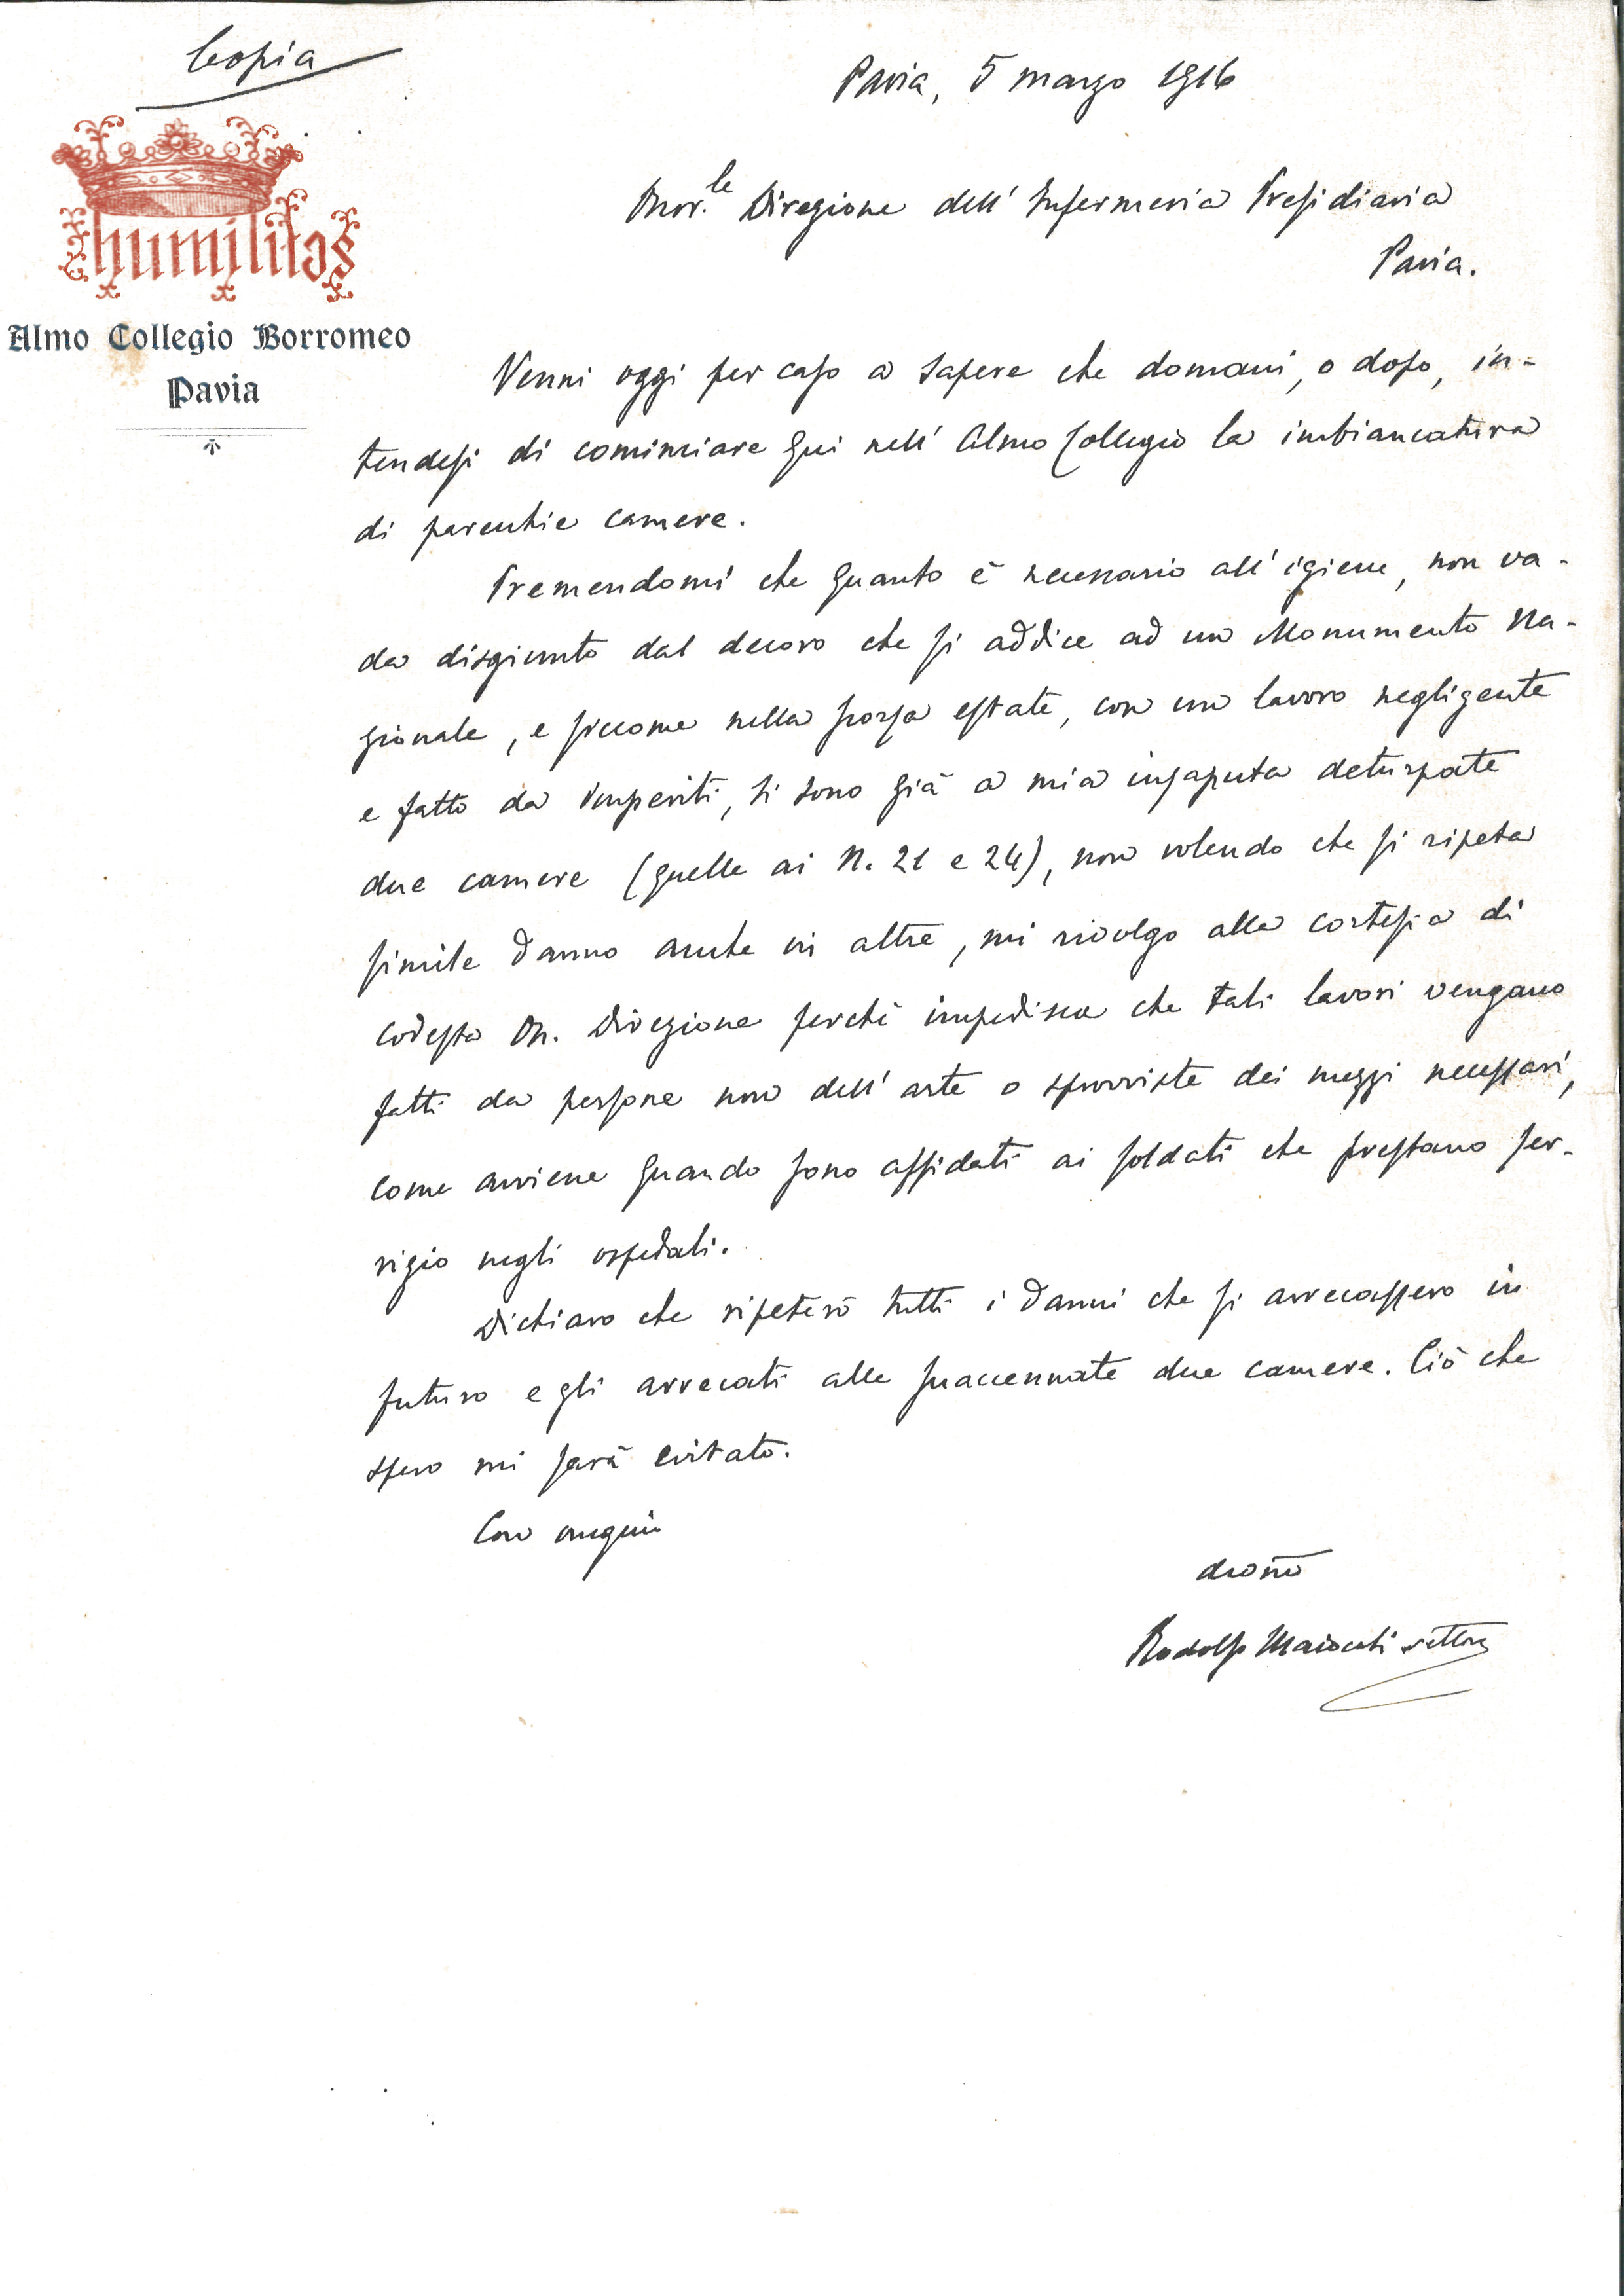 Copia
Pavia, 5 marzo 1916
Onor.le Direzione dell' Infermeria Presidiaria
Pavia.
humilitas
Almo Collegio Borromeo
Pavia
Venni oggi per caso a sapere che domani, o dopo, in-
tendesi di cominciare qui nell' Almo Collegio la imbiancatura
di parecchie camere.
Premendomi che quanto è necessario all' igiene, non va-
da disgiunto dal decoro che si addice ad un Monumento Na-
zionale, e siccome nella scorsa estate, con un lavoro negligente
e fatto da imperiti, si sono già a mia insaputa deturpate
due camere (quelle ai N. 21 e 24), non volendo che si ripeta
simile danno anche in altre, mi rivolgo alla cortesia di
codesta On. Direzione perchè impedisca che tali lavori vengano
fatti da persone non dell' arte o sprovviste dei mezzi necessari,
come avviene quando sono affidati ai soldati che prestano ser-
vizio negli ospedali.
Dichiaro che ripeterò tutti i danni che si arrecassero in
futuro e gli arrecati alle suaccennate due camere. Ciò che
spero mi sarà evitato.
Con ossequio
devmo
Rodolfo Maiocchi rettore